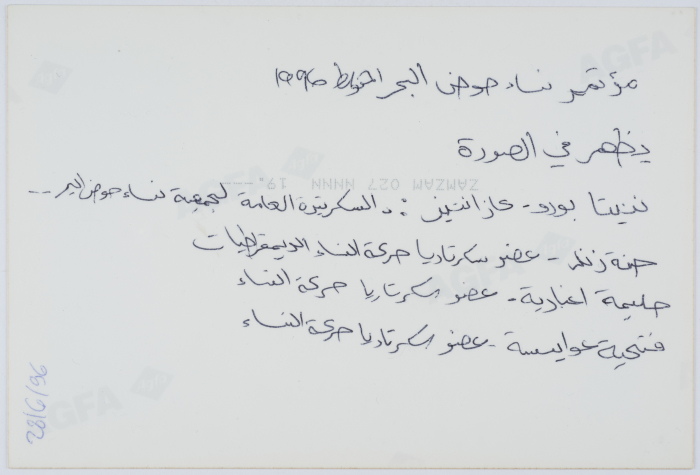 مؤتمر نساء حوض البحر المتوسط ١٩٩٦
يظهر في الصورة
ZAMZAM 027 NNNN 19
- السكرتيرة العامة لجمعية نساء حوض البحر --
حنة زنفر - عضو سكرتاريا حركة النساء الديمقراطيات
حليمة اغبارية - عضو سكرتاريا حركة النساء
فتحية عوايسة - عضو سكرتاريا حركة النساء
28/6/96
AGFA
AGFA
AGFA